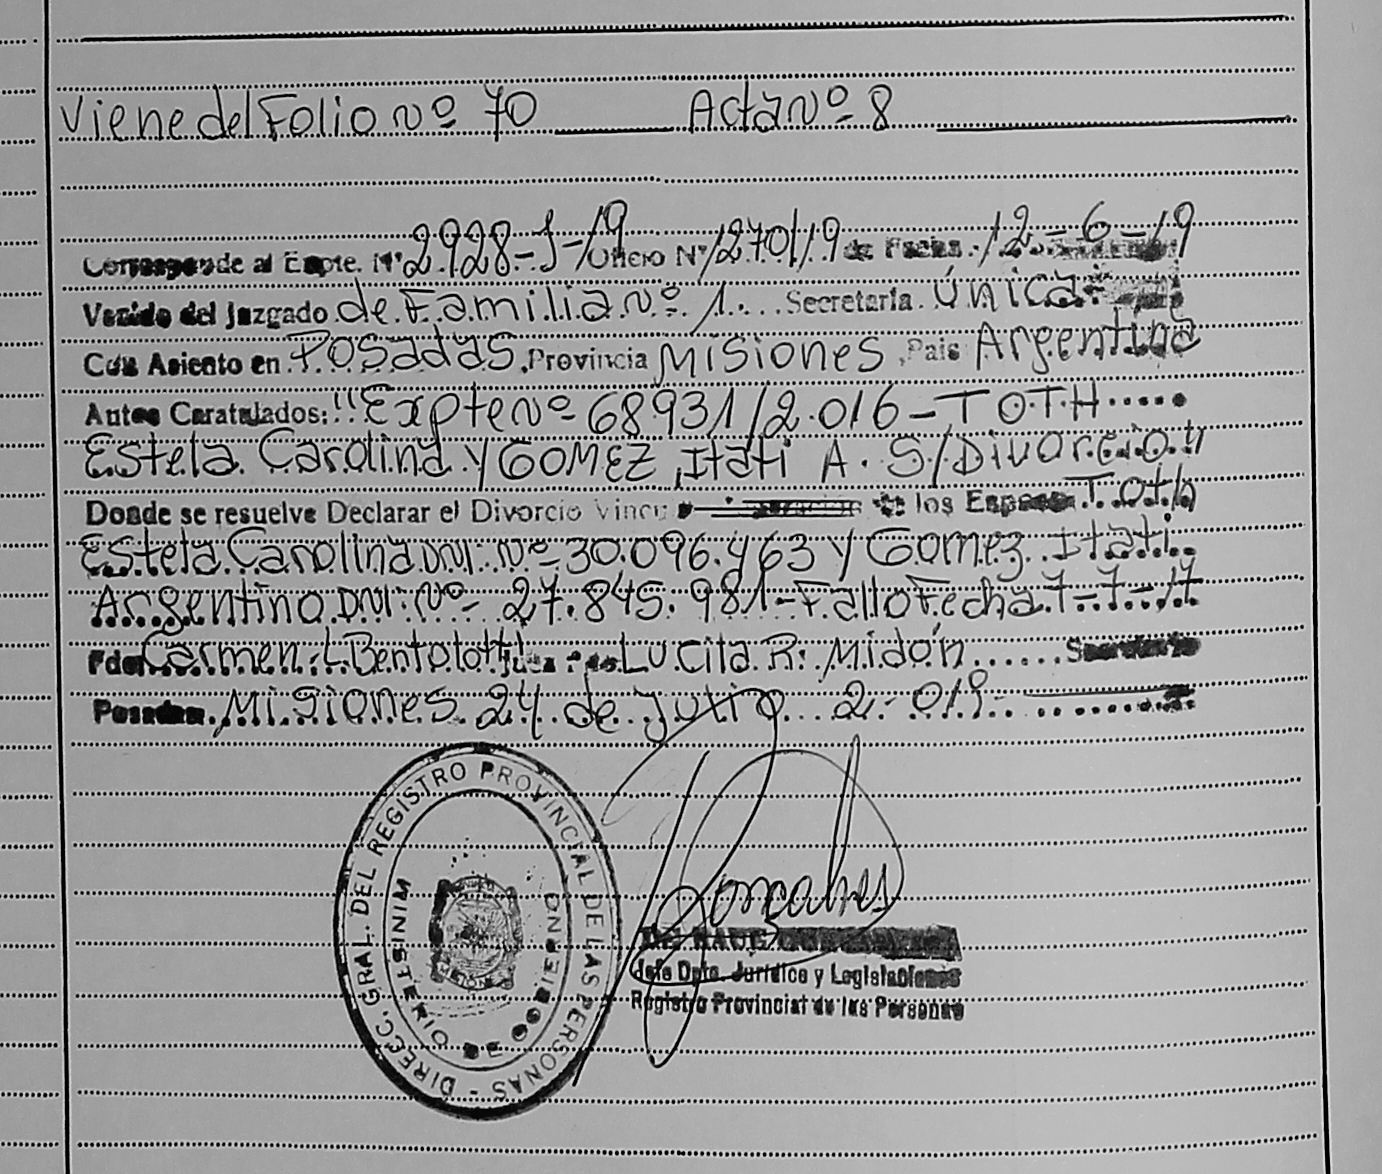 Viene del Folio nº 70 Acta nº 8
Corresponde al Expte. Nº 2928-J-19 Oficio Nº 1270/19 de Fecha. 12-6-19
Venido del Juzgado de Familia Nº 1. Secretaria Única
Con Asiento en Posadas, Provincia Misiones, Pais Argentina
Autos Caratulados: "Expte nº 68931/2.016-TOTH
Estela Carolina y GOMEZ, Itati A. S/Divorcio"
Donde se resuelve Declarar el Divorcio Vincu los Esposos Toth
Estela Carolina DNI: Nº 30.096.463 y Gomez Itati
Argentino DNI: Nº 27.845.981-Fallo Fecha 7-7-17
Fdo: Carmen L. Juez Lucita R. Midón Secretario
Posadas, Misiones 24 de Julio 2.019
DIRECC. GRAL. DEL REGISTRO PROVINCIAL DE LAS PERSONAS -
MINISTERIO DE GOBIERNO
Jefe Dpto. Jurídico y Legislaciones
Registro Provincial de las Personas